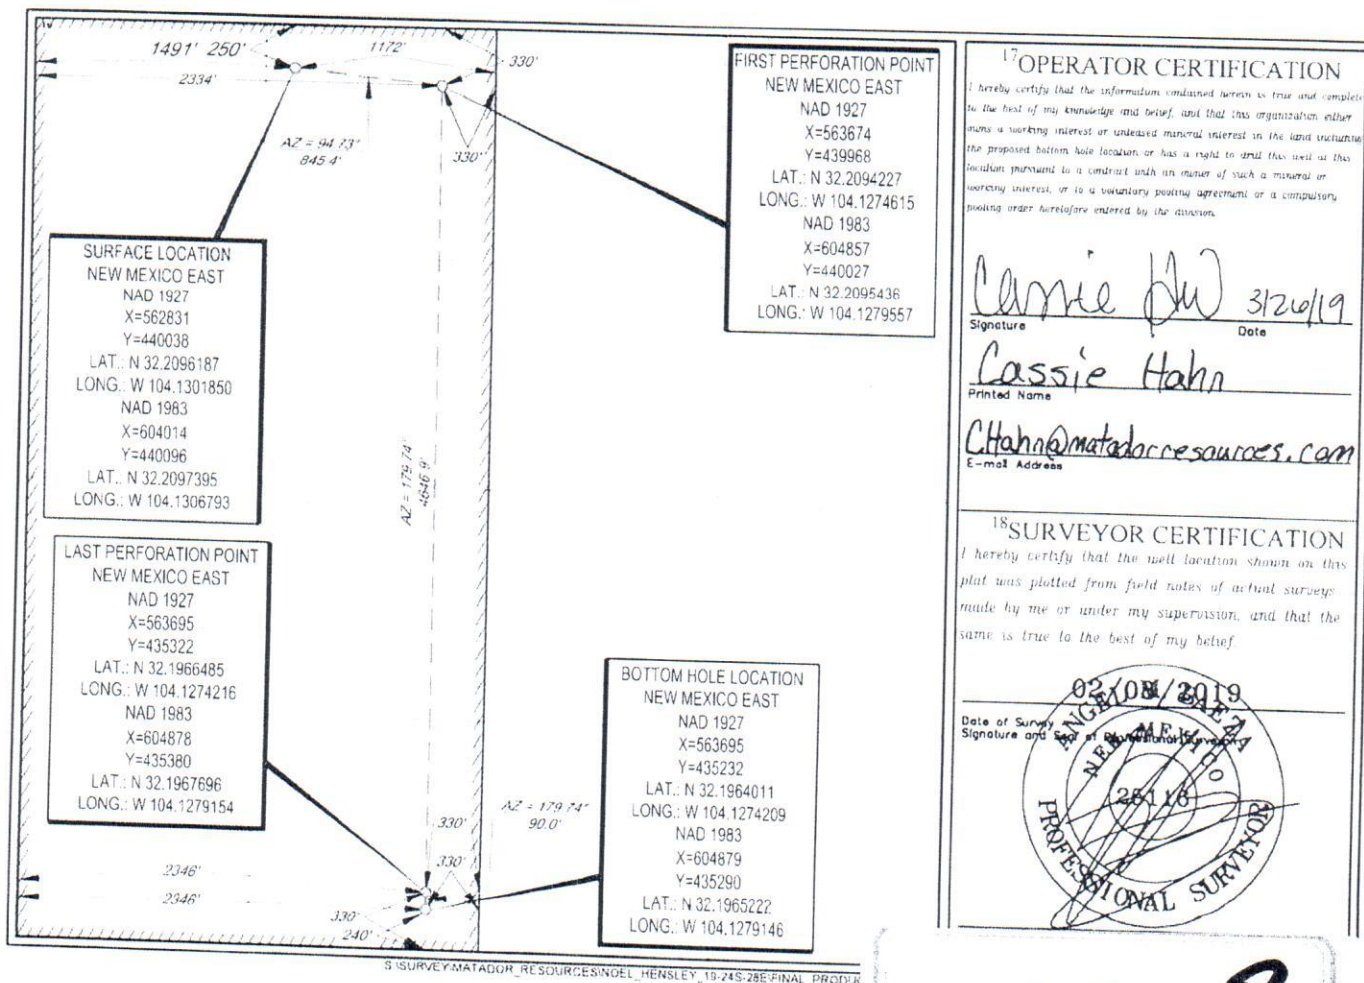 1491' 250'
1172'
330'
2334'
AZ = 94.73°
845.4'
330'
FIRST PERFORATION POINT
NEW MEXICO EAST
NAD 1927
X=563674
Y=439968
LAT.: N 32.2094227
LONG.: W 104.1274615
NAD 1983
X=604857
Y=440027
LAT.: N 32.2095436
LONG.: W 104.1279557
SURFACE LOCATION
NEW MEXICO EAST
NAD 1927
X=562831
Y=440038
LAT.: N 32.2096187
LONG.: W 104.1301850
NAD 1983
X=604014
Y=440096
LAT.: N 32.2097395
LONG.: W 104.1306793
AZ = 179.74°
4646.9'
LAST PERFORATION POINT
NEW MEXICO EAST
NAD 1927
X=563695
Y=435322
LAT.: N 32.1966485
LONG.: W 104.1274216
NAD 1983
X=604878
Y=435380
LAT.: N 32.1967696
LONG.: W 104.1279154
BOTTOM HOLE LOCATION
NEW MEXICO EAST
NAD 1927
X=563695
Y=435232
LAT.: N 32.1964011
LONG.: W 104.1274209
NAD 1983
X=604879
Y=435290
LAT.: N 32.1965222
LONG.: W 104.1279146
AZ = 179.74°
90.0'
330'
330'
2346'
2346'
330'
240'
S:\SURVEY\MATADOR_RESOURCES\NOEL_HENSLEY_19-24S-28E\FINAL_PRODU
17 OPERATOR CERTIFICATION
I hereby certify that the information contained herein is true and complete
to the best of my knowledge and belief, and that this organization either
owns a working interest or unleased mineral interest in the land including
the proposed bottom hole location or has a right to drill this well at this
location pursuant to a contract with an owner of such a mineral or
working interest, or to a voluntary pooling agreement or a compulsory
pooling order heretofore entered by the division.
3/26/19
Signature Date
Cassie Hahn
Printed Name
CHahn@matadorresources.com
E-mail Address
18 SURVEYOR CERTIFICATION
I hereby certify that the well location shown on this
plat was plotted from field notes of actual surveys
made by me or under my supervision, and that the
same is true to the best of my belief
02/08/2019
Date of Survey
Signature and Seal of Professional Surveyor
ANGEL M. BAEZA
NEW MEXICO
25116
PROFESSIONAL SURVEYOR